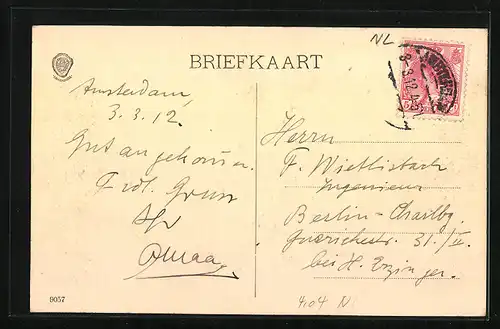 NL
BRIEFKAART
Amsterdam,
3.3.12.
Gut angekommen.
Frdl. Gruss
Herrn
F. Wietlisbach
Ingenieur
Berlin-Charlbg.
Guerickestr. 31./II.
bei H. Erzinger.
9057
4,04 N